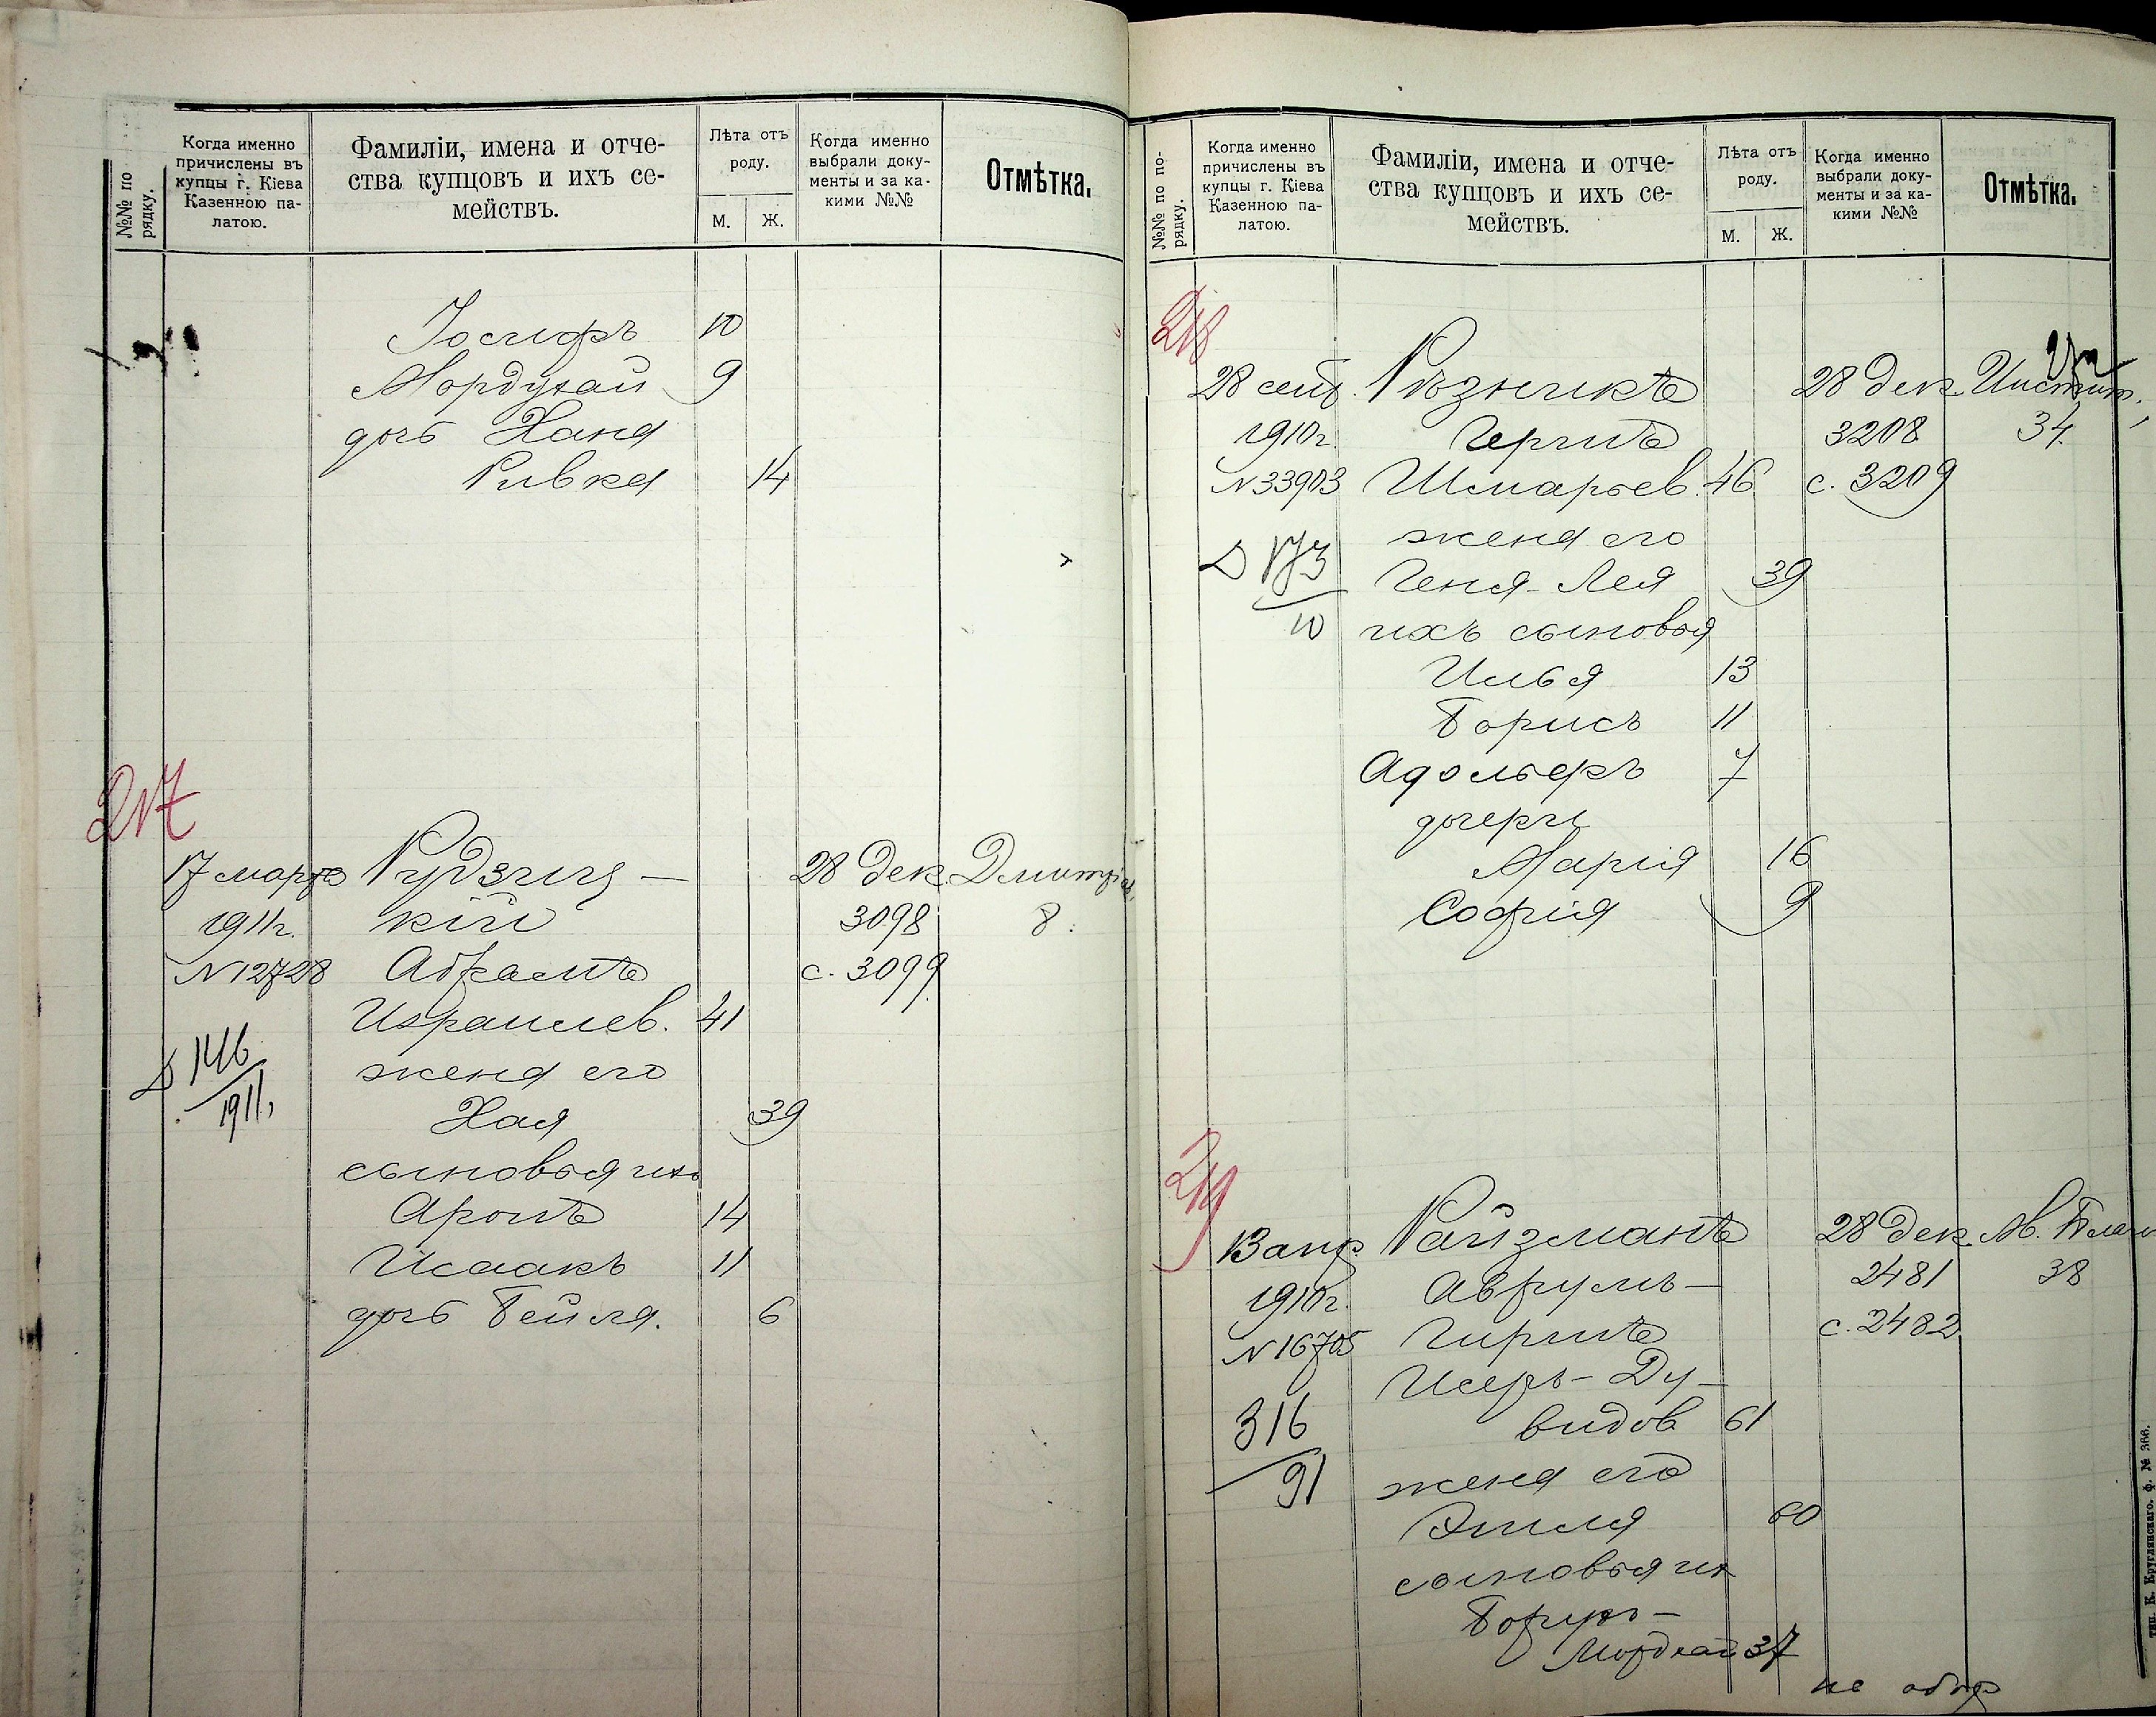 №№ по
рядку.
Когда именно
причислены въ
купцы г. Кіева
Казенною па-
латою.
Фамиліи, имена и отче-
ства купцовъ и ихъ се-
мействъ.
Лѣта отъ
роду.
М.
Ж.
Когда именно
выбрали доку-
менты и за ка-
кими №№
Отмѣтка.
Іосифъ 10
Мордухай 9
дочь Хана
Ривка 14
217
17 марта Рудзиц- 28 дек. Дмитріев.
1911г. кій 3098 8.
№12728 Абрамъ с. 3099
Израилев. 41
Д 146 жена его
1911, Хая 39
сыновья ихъ
Аронъ 14
Исаакъ 11
дочь Бейля. 6
№№ по по-
рядку.
Когда именно
причислены въ
купцы г. Кіева
Казенною па-
латою.
Фамиліи, имена и отче-
ства купцовъ и ихъ се-
мействъ.
Лѣта отъ
роду.
М.
Ж.
Когда именно
выбрали доку-
менты и за ка-
кими №№
Отмѣтка.
218
28 сент. Рѣзникъ 28 дек. Инстит.
1910г. Герцъ 3208 34.
№33903 Шмарьев. 46 с. 3209
жена его
Д 173 Геня-Лея 39
10 ихъ сыновья
Илья 13
Борисъ 11
Адольфъ 7
дочери
Марія 16
Софія 9
219
13 апр. Райзманъ 28 дек. М. Благ
1910г. Аврумъ- 2481 38
№16705 Гиршъ с. 2482
Исеръ-Ду-
видов 61
316 жена его
91 Этля 60
сыновья их
Борухъ-
Мордхай 37
не
тип. К. Круглянскаго. ф. № 366.